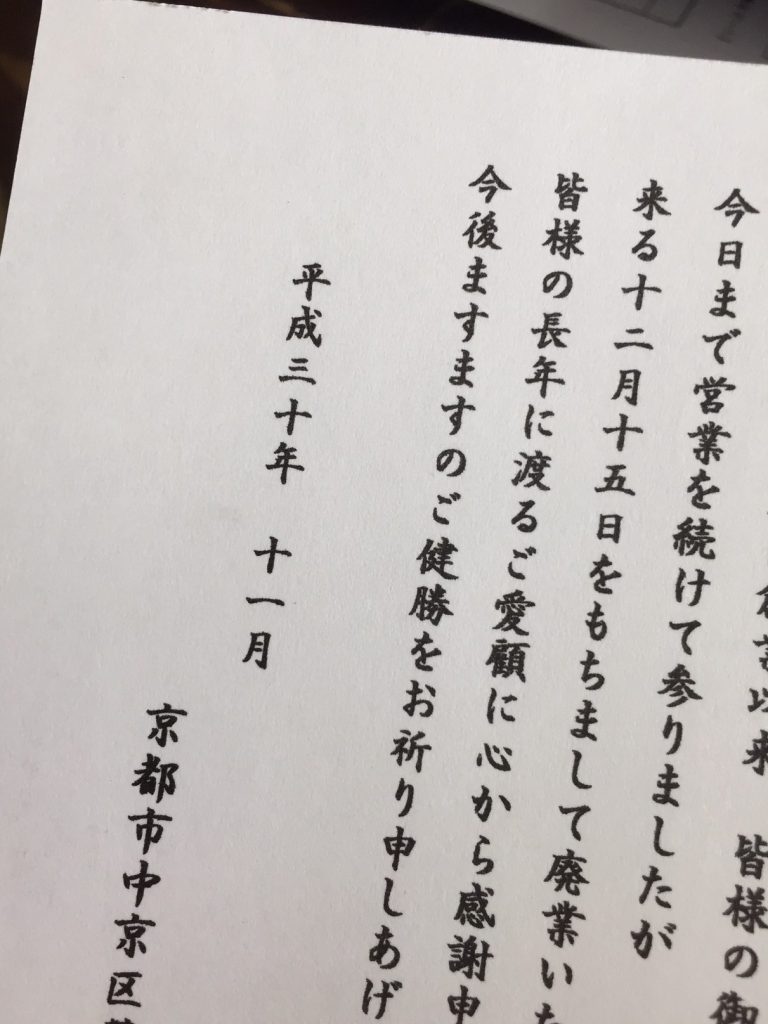 以来　皆様の御
今日まで営業を続けて参りましたが
来る十二月十五日をもちまして廃業いた
皆様の長年に渡るご愛顧に心から感謝申
今後ますますのご健勝をお祈り申しあげ
平成三十年　十一月
京都市中京区